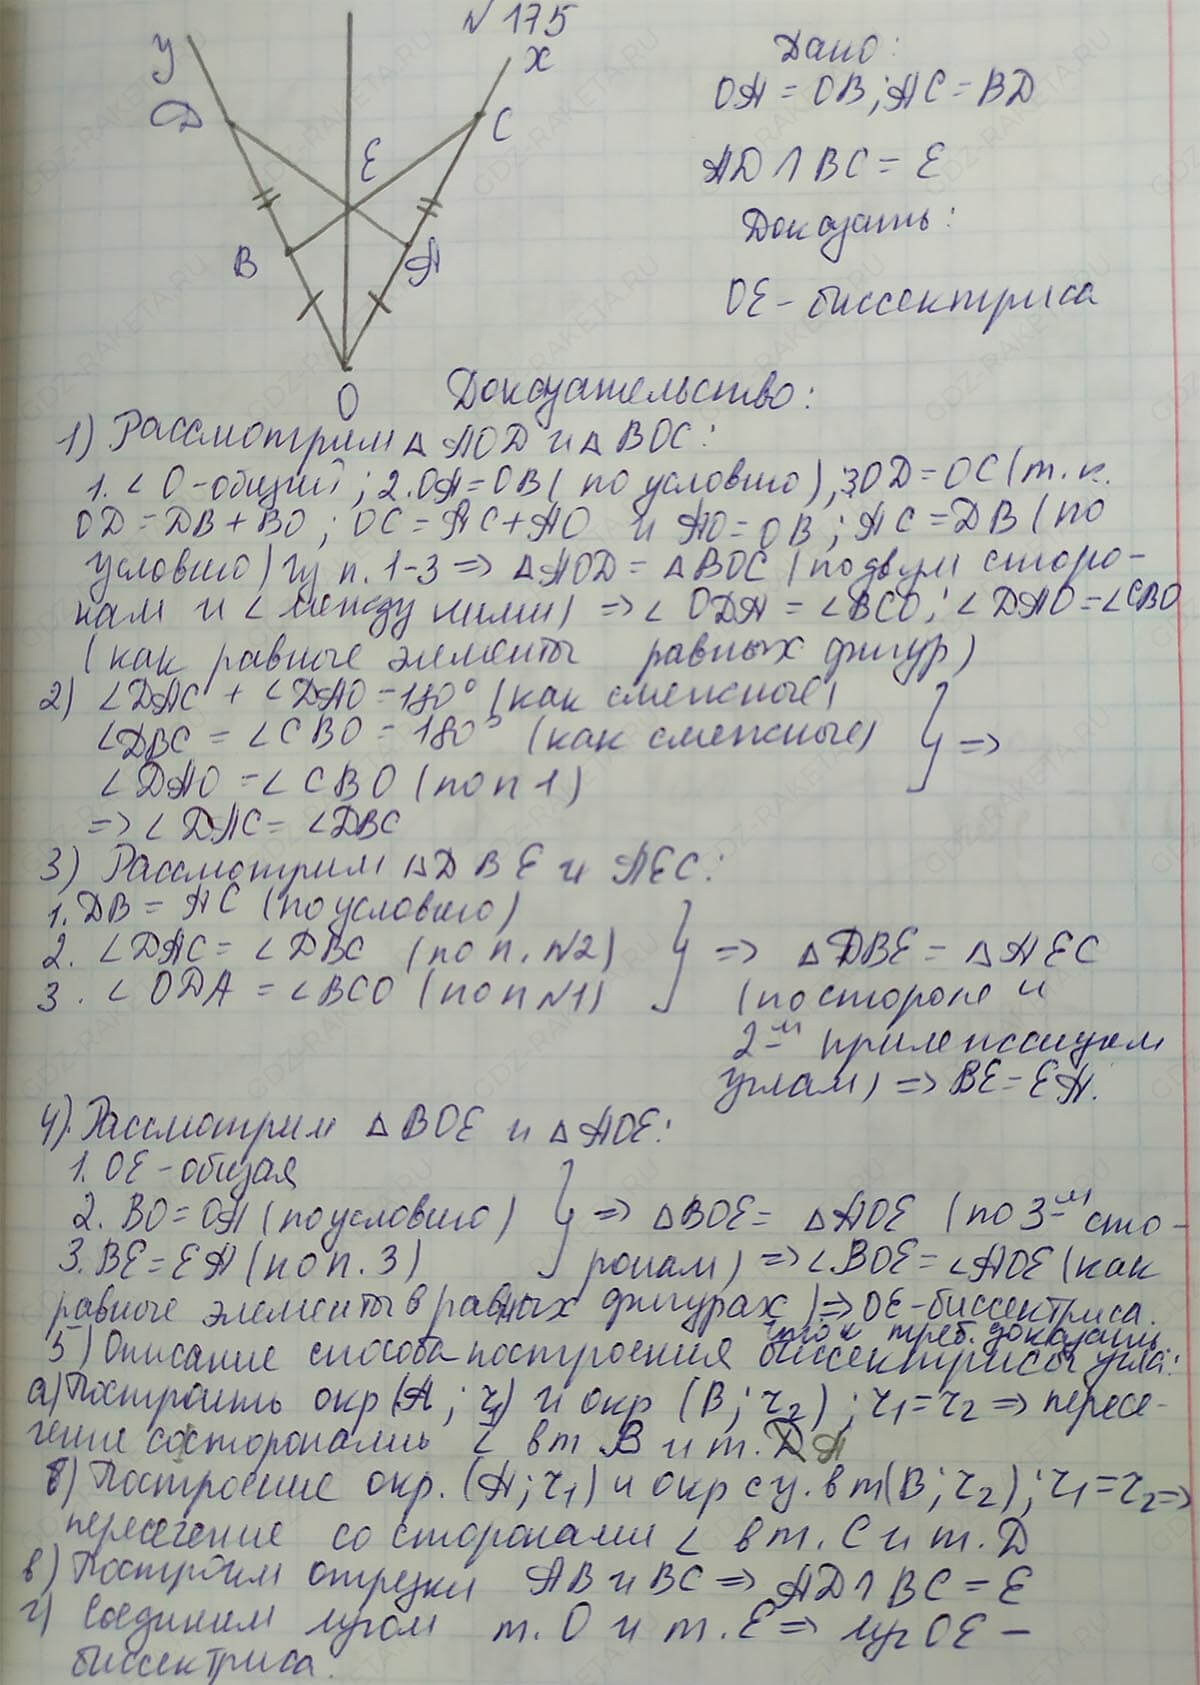 №175
У
Х
Дано:
OA = OB; AC = BD
D
C
E
AD ∩ BC = E
Доказать:
B
A
OE - биссектриса
O
Доказательство:
1) Рассмотрим △ AOD и △ BOC:
1. ∠ O - общий; 2. OA = OB (по условию); 3 OD = OC (т.к.
OD = DB + BO; OC = AC + AO и AO = OB; AC = DB (по
условию) из п. 1-3 => △ AOD = △ BOC (по двум сторо-
нам и ∠ между ними) => ∠ ODA = ∠BCO; ∠ DAO = ∠CBO
(как равные элементы равных фигур)
2) ∠DAC + ∠DAO = 180° (как смежные)
∠DBC = ∠CBO = 180° (как смежные) =>
∠DAO = ∠CBO (по п 1)
=> ∠DAC = ∠DBC
3) Рассмотрим △DBE и AEC:
1. DB = AC (по условию)
2. ∠DAC = ∠DBC (по п. №2) => △DBE = △AEC
3. ∠ODA = ∠BCO (по п №1) (по стороне и
2-м прилежащим
углам) => BE = EA.
4). Рассмотрим △BOE и △AOE:
1. OE - общая
2. BO = OA (по условию) => △BOE = △AOE (по 3-м сто-
3. BE = EA (по п. 3) ронам) => ∠BOE = ∠AOE (как
равные элементы в равных фигурах) => OE - биссектриса.
что и треб. доказать
5) Описание способа построения биссектрисы угла:
а) Построить окр (A; r1) и окр (B; r2); r1 = r2 => пересе-
чение со сторонами ∠ в т. B и т. A
б) Построение окр. (A; r1) и окр с ц. в т (B; r2); r1 = r2 =>
пересечение со сторонами ∠ в т. C и т. D
в) Построим отрезки AB и BC => AD ∩ BC = E
г) Соединим лучом т. O и т. E => луч OE -
биссектриса.
GDZ-RAKETA.RU